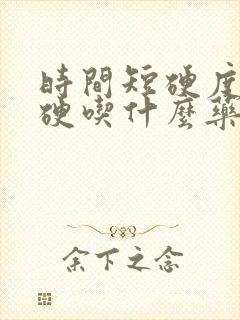 時間短硬度
硬喫什麼藥
余下之念